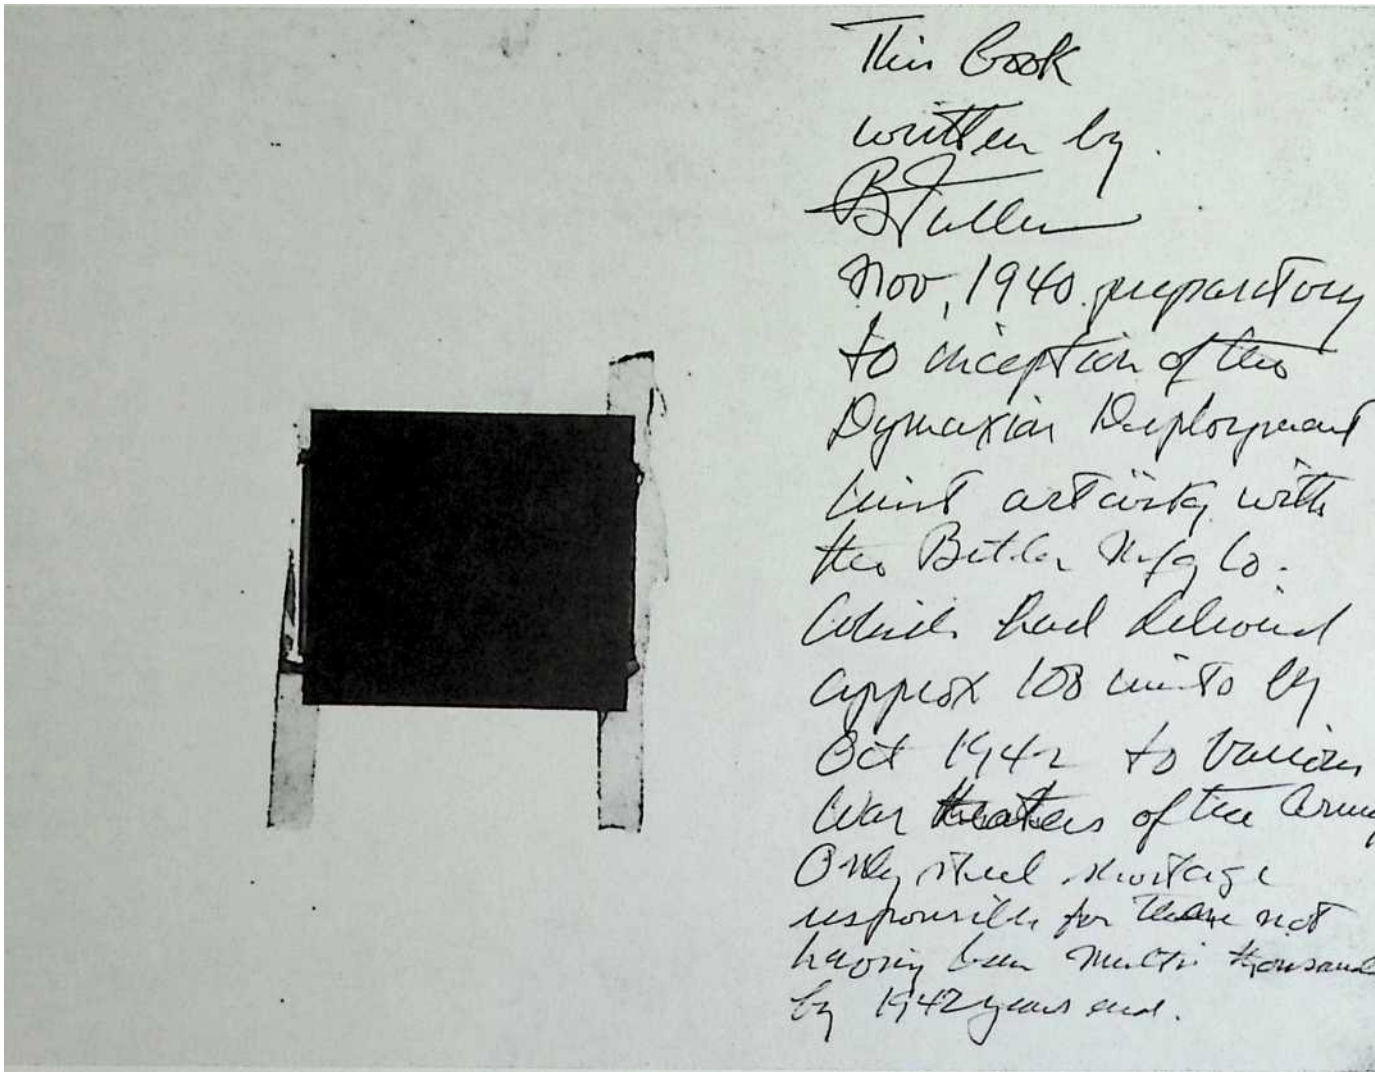 This book
written by
B Fuller
Nov, 1940 preparatory
to inception of the
Dymaxion Deployment
Unit activity with
the Butler Mfg Co.
which had delivered
approx 100 units by
Oct 1942 to various
War theaters of the Army
Only steel shortage
responsible for there not
having been multi thousand
by 1942 years end.